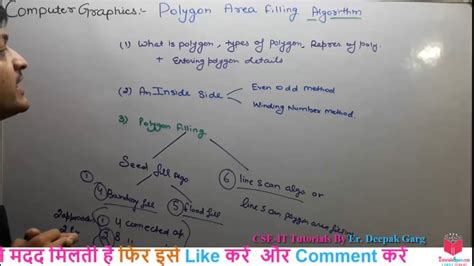 Computer Graphics:- Polygon Area Filling Algorithm
(1) What is polygon, types of polygon, Repres of poly.
+ Entering polygon details
(2) An Inside Side
Even odd method
Winding Number method
3) Polygon filling
Seed fill algo
④ Boundary fill
⑤ flood fill
⑥ line scan algo or
line scan polygon area
① 4 connected
② 8
CSE-IT Tutorials By Er. Deepak Garg
मदद मिलती है फिर इसे Like करें और Comment करें